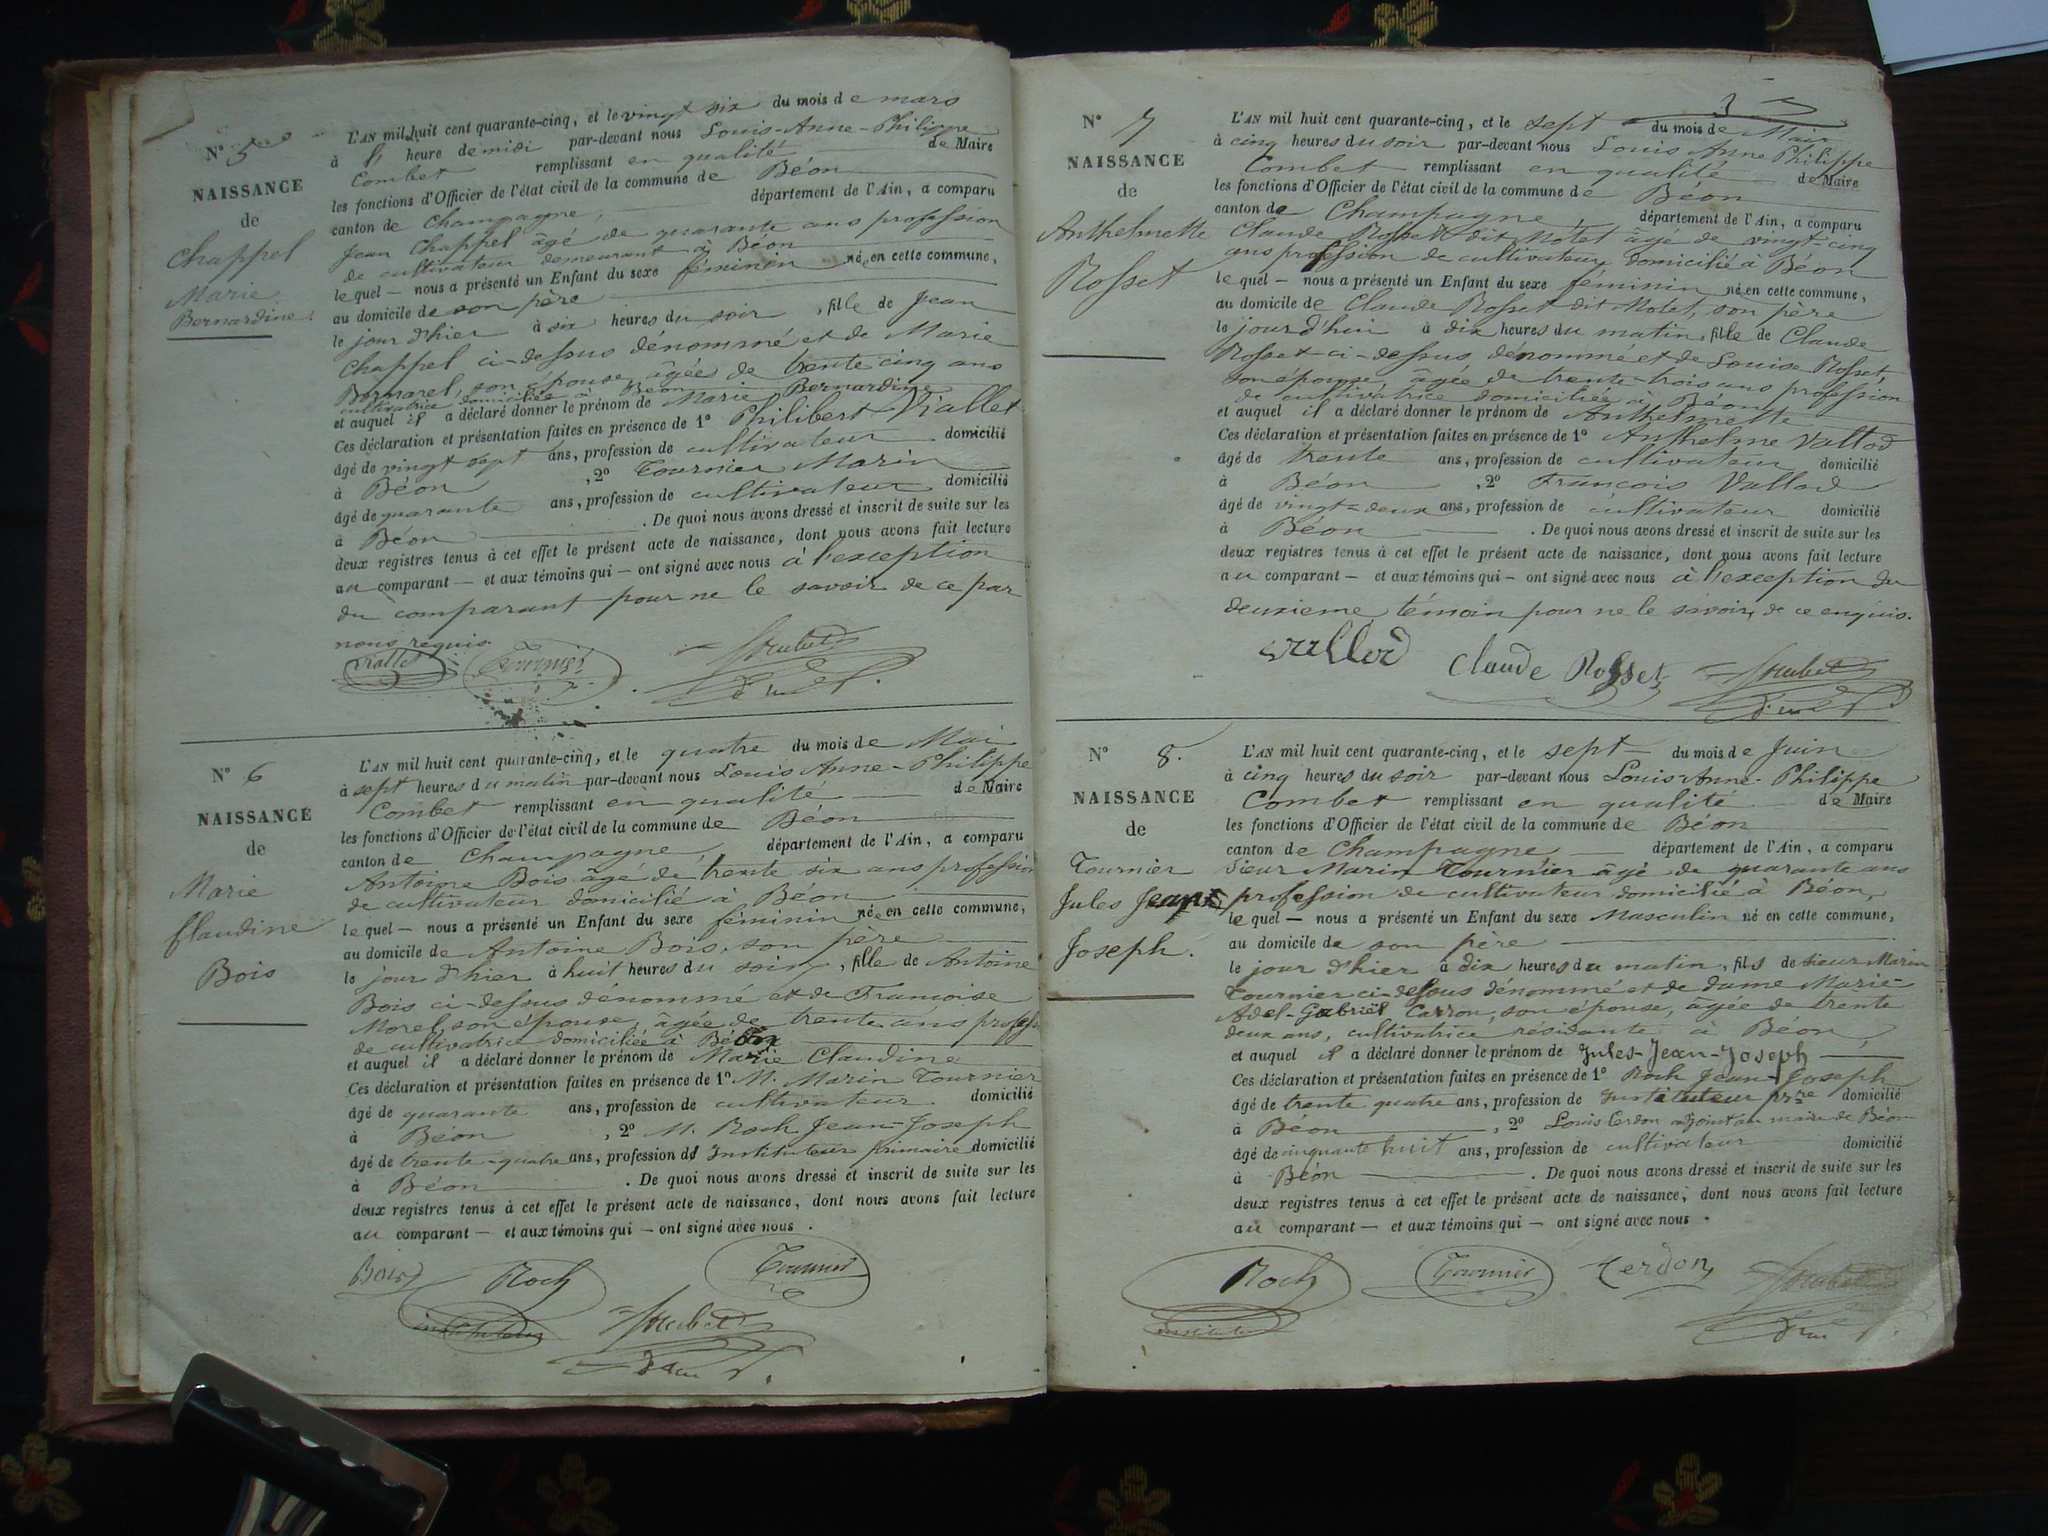 N° 5
NAISSANCE
de
Chappel
Marie
Bernardine
L'AN mil huit cent quarante-cinq, et le vingt six du mois de mars
à heure de midi par-devant nous Louis-Anne-Philippe
Combet remplissant en qualité de Maire
les fonctions d'Officier de l'état civil de la commune de Béon
canton de Champagne, département de l'Ain, a comparu
Jean Chappel âgé de quarante ans profession
de cultivateur demeurant à Béon
lequel — nous a présenté un Enfant du sexe féminin née en cette commune,
au domicile de son père
le jour d'hier à six heures du soir, fille de Jean
Chappel ci-dessus dénommé et de Marie
Bornarel, son épouse, âgée de trente cinq ans
cultivatrice domiciliée à Béon
et auquel il a déclaré donner le prénom de Marie Bernardine
Ces déclaration et présentation faites en présence de 1° Philibert Viallet
âgé de vingt sept ans, profession de cultivateur domicilié
à Béon, 2° Tournier Marin
âgé de quarante ans, profession de cultivateur domicilié
à Béon. De quoi nous avons dressé et inscrit de suite sur les
deux registres tenus à cet effet le présent acte de naissance, dont nous avons fait lecture
au comparant — et aux témoins qui — ont signé avec nous à l'exception
du comparant pour ne le savoir de ce par
nous requis.
Viallet Tournier
N° 6
NAISSANCE
de
Marie
Claudine
Bois
L'AN mil huit cent quarante-cinq, et le quatre du mois de Mai
à sept heures du matin par-devant nous Louis Anne-Philippe
Combet remplissant en qualité de Maire
les fonctions d'Officier de l'état civil de la commune de Béon
canton de Champagne, département de l'Ain, a comparu
Antoine Bois âgé de trente six ans profession
de cultivateur domicilié à Béon
lequel — nous a présenté un Enfant du sexe féminin née en cette commune,
au domicile de Antoine Bois, son père
le jour d'hier à huit heures du soir, fille de Antoine
Bois ci-dessus dénommé et de Francoise
Morel, son épouse, âgée de trente ans profess
de cultivatrice domiciliée à Béon
et auquel il a déclaré donner le prénom de Marie Claudine
Ces déclaration et présentation faites en présence de 1° M. Marin Tournier
âgé de quarante ans, profession de cultivateur domicilié
à Béon, 2° M. Roch Jean-Joseph
âgé de trente-quatre ans, profession d' Instituteur primaire domicilié
à Béon. De quoi nous avons dressé et inscrit de suite sur les
deux registres tenus à cet effet le présent acte de naissance, dont nous avons fait lecture
au comparant — et aux témoins qui — ont signé avec nous.
Bois Roch Tournier
instituteur
3
N° 7
NAISSANCE
de
Anthelmette
Rosset
L'AN mil huit cent quarante-cinq, et le sept du mois de Mai
à cinq heures du soir par-devant nous Louis Anne Philippe
Combet remplissant en qualité de Maire
les fonctions d'Officier de l'état civil de la commune de Béon
canton de Champagne, département de l'Ain, a comparu
Claude Rosset dit Motet âgé de vingt-cinq
ans profession de cultivateur, domicilié à Béon
lequel — nous a présenté un Enfant du sexe féminin née en cette commune,
au domicile de Claude Rosset dit Motet, son père
le jour d'hui à dix heures du matin, fille de Claude
Rosset ci-dessus dénommé et de Louise Rosset,
son épouse, âgée de trente-trois ans profession
de cultivatrice domiciliée à Béon
et auquel il a déclaré donner le prénom de Anthelmette
Ces déclaration et présentation faites en présence de 1° Anthelme Vallod
âgé de trente ans, profession de cultivateur domicilié
à Béon, 2° François Vallod
âgé de vingt-deux ans, profession de cultivateur domicilié
à Béon. De quoi nous avons dressé et inscrit de suite sur les
deux registres tenus à cet effet le présent acte de naissance, dont nous avons fait lecture
au comparant — et aux témoins qui — ont signé avec nous à l'exception du
deuxieme témoin pour ne le savoir, de ce enquis.
Vallod Claude Rosset
N° 8.
NAISSANCE
de
Tournier
Jules Jean
Joseph.
L'AN mil huit cent quarante-cinq, et le sept du mois de Juin
à cinq heures du soir par-devant nous Louis Anne-Philippe
Combet remplissant en qualité de Maire
les fonctions d'Officier de l'état civil de la commune de Béon
canton de Champagne département de l'Ain, a comparu
sieur Marin Tournier âgé de quarante ans
profession de cultivateur domicilié à Béon,
lequel — nous a présenté un Enfant du sexe Masculin né en cette commune,
au domicile de son père
le jour d'hier à dix heures du matin, fils de sieur Marin
Tournier ci-dessus dénommé et de dame Marie-
Adel-Gabriël Carron, son épouse, âgée de trente
deux ans, cultivatrice résidante à Béon,
et auquel il a déclaré donner le prénom de Jules-Jean-Joseph
Ces déclaration et présentation faites en présence de 1° Roch Jean-Joseph
âgé de trente quatre ans, profession de Instituteur prre domicilié
à Béon, 2° Louis Cerdon adjoint au maire de Béon
âgé de cinquante huit ans, profession de cultivateur domicilié
à Béon. De quoi nous avons dressé et inscrit de suite sur les
deux registres tenus à cet effet le présent acte de naissance, dont nous avons fait lecture
au comparant — et aux témoins qui — ont signé avec nous.
Roch Tournier Cerdon